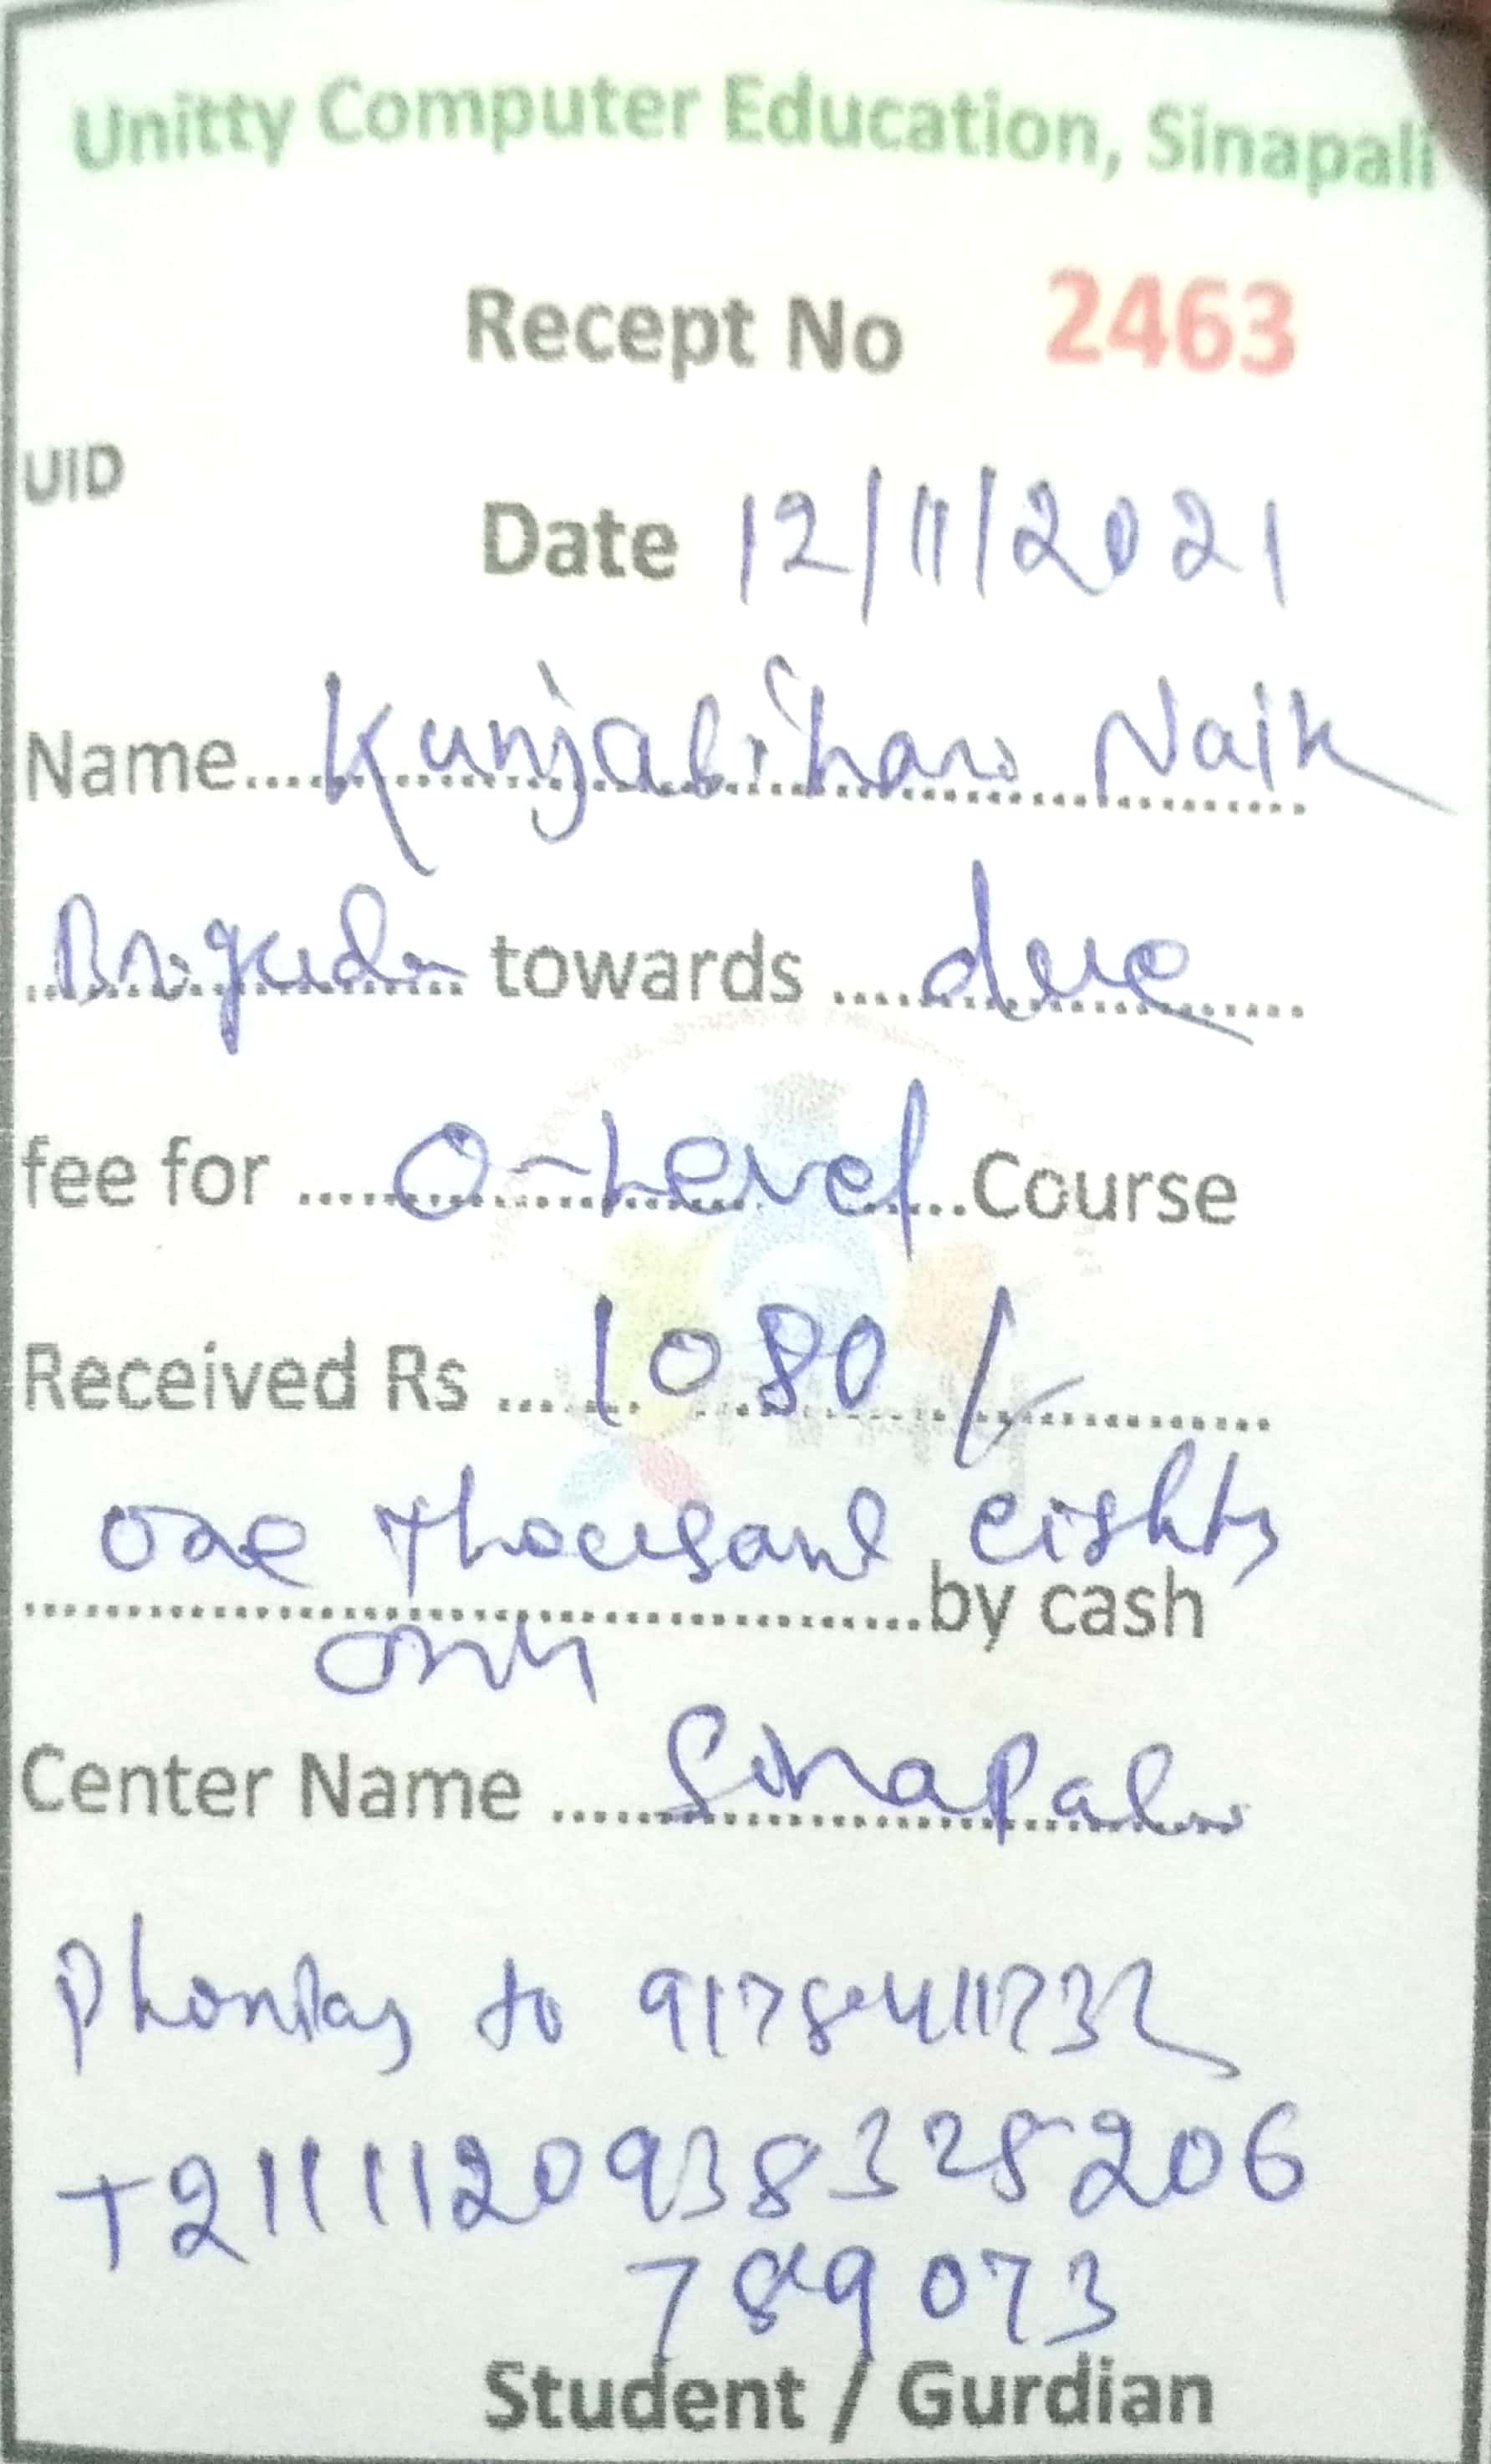 Unitty Computer Education, Sinapali
Recept No 2463
UID
Date 12/11/2021
Name.... Kunjabihari Naik
.... towards .... due
fee for .... O-Level ....Course
Received Rs .... 1080/-
one thousand eighty
....by cash
only
Center Name .... Sinapali
Phonpay to 9178411732
T2111120938328206
789073
Student / Gurdian